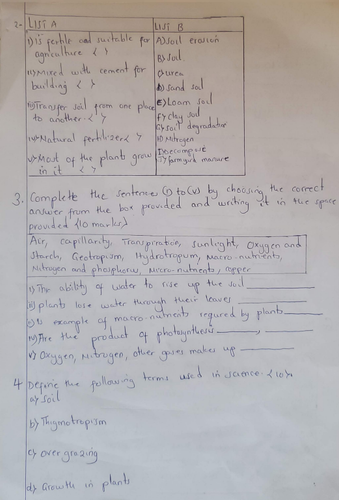 2. LIST A
LIST B
i) Is fertile and suitable for
agriculture < >
ii) Mixed with cement for
building < >
iii) Transfer soil from one place
to another < >
iv) Natural fertilizer < >
v) Most of the plants grow
in it < >
A) Soil erosion
B) Soil
C) Urea
D) Sand soil
E) Loam soil
F) Clay soil
G) Soil degradative
H) Nitrogen
I) Decompose
J) Farmyard manure
3. Complete the sentences (i) to (v) by choosing the correct
answer from the box provided and writing it in the space
provided <10 marks>
Air, capillarity, Transpiration, sunlight, Oxygen and
starch, Geotropism, Hydrotropum, Macro-nutrients,
Nitrogen and phosphorus, micro-nutrients, copper
i) The ability of water to rise up the soil
ii) plants lose water through their leaves
iii) Is example of macro-nutrients required by plants
iv) Are the product of photosynthesis
v) Oxygen, Nitrogen, other gases makes up
4. Define the following terms used in science. <10>
a) Soil
b) Thigmotropism
c) Over grazing
d) Growth in plants